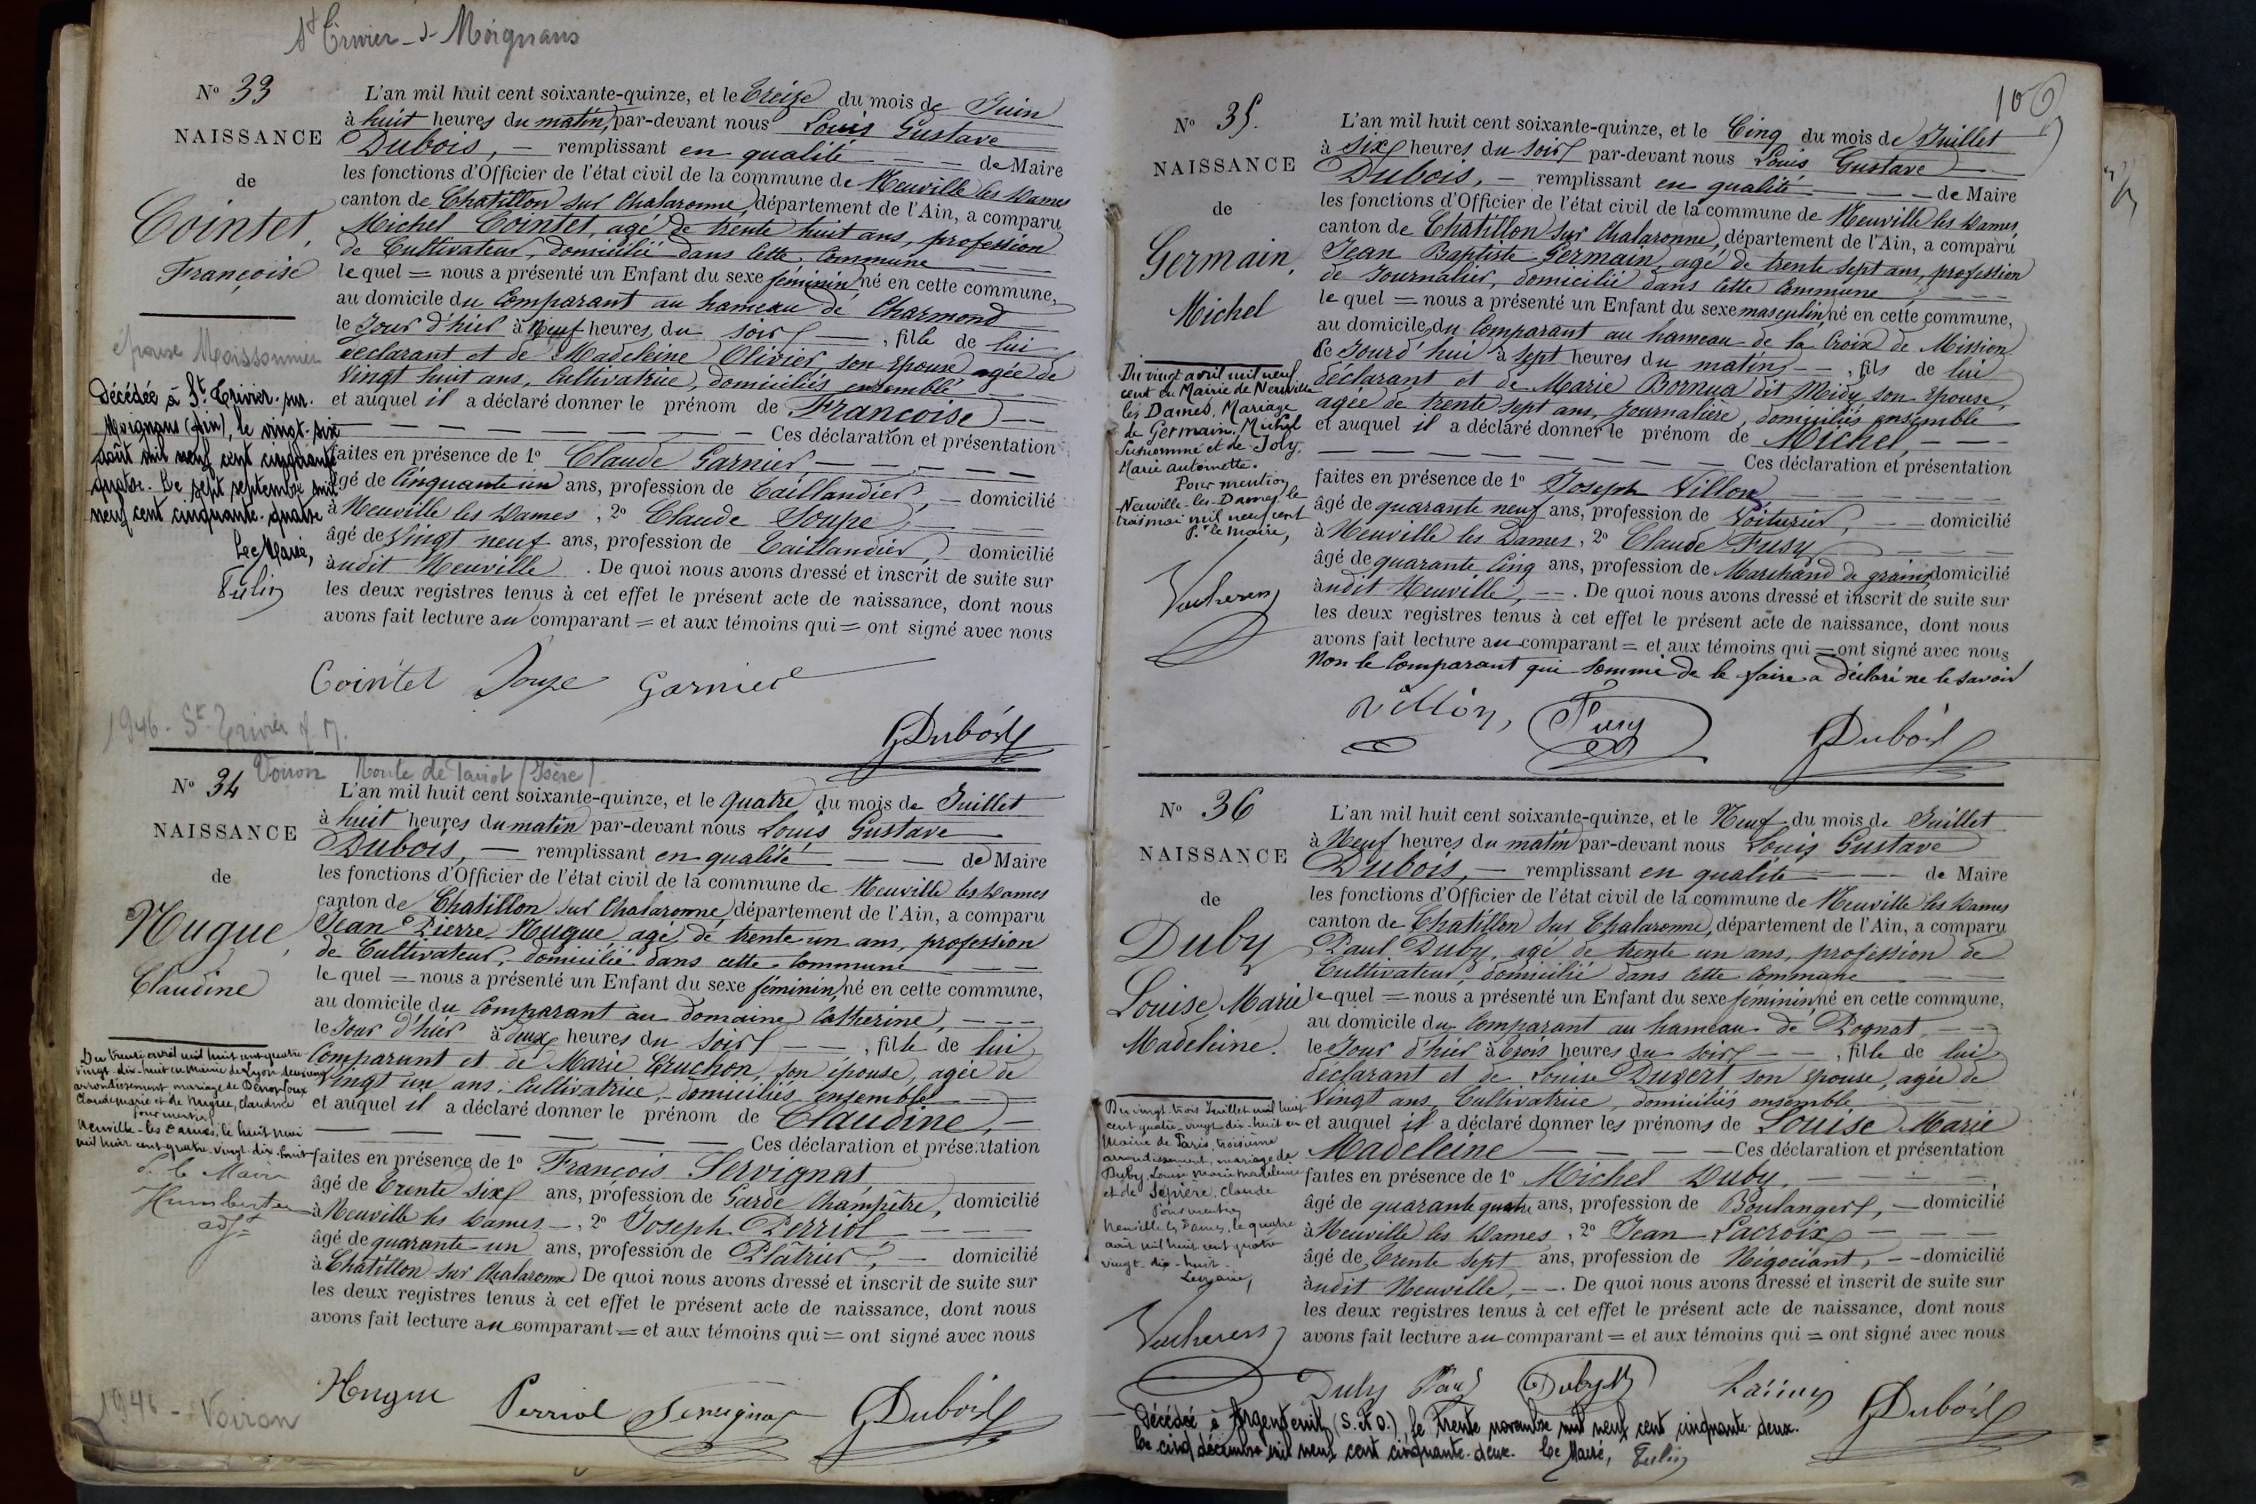 St Trivier-s-Moignans
No 33
NAISSANCE
de
Cointet,
Françoise
épouse Moissonnier
Décédée à St. Trivier-sur-
Moignans (Ain), le vingt-six
août mil neuf cent cinquante
quatre. Le sept septembre mil
neuf cent cinquante-quatre
Le Maire,
L'an mil huit cent soixante-quinze, et le Treize du mois de Juin
à huit heures du matin, par-devant nous Louis Gustave
Dubois, — remplissant en qualité — — de Maire
les fonctions d'Officier de l'état civil de la commune de Neuville les Dames
canton de Chatillon sur Chalaronne, département de l'Ain, a comparu
Michel Cointet, agé de trente huit ans, profession
de Cultivateur, domicilié dans cette Commune — —
lequel = nous a présenté un Enfant du sexe féminin, né en cette commune,
au domicile du Comparant au hameau de Charmond
le Jour d'hier à Neuf heures du soir — , fille de lui
declarant et de Madeleine Olivier son épouse agée de
vingt huit ans, Cultivatrice, domiciliés ensemble
et auquel il a déclaré donner le prénom de Françoise —
— — — — — — — — Ces déclaration et présentation
faites en présence de 1o Claude Garnier, — — — —
âgé de Cinquante un ans, profession de Taillandier, — domicilié
à Neuville les Dames , 2o Claude Soupe, —
âgé de Vingt neuf ans, profession de Taillandier, domicilié
audit Neuville . De quoi nous avons dressé et inscrit de suite sur
les deux registres tenus à cet effet le présent acte de naissance, dont nous
avons fait lecture au comparant = et aux témoins qui = ont signé avec nous
Cointet Soupe Garnier
GDubois
1946 - St Trivier s/ M.
Voiron Route de (Isère)
No 34
NAISSANCE
de
Nugue,
Claudine
Du trente avril mil huit cent quatre-
vingt-dix-huit en Mairie de Lyon deuxième
arrondissement mariage de
Claude Marie et de Nugue, Claudine
Pour mention
Neuville-les-Dames, le huit mai
mil huit cent quatre-vingt-dix-huit
P. le Maire
adjt
L'an mil huit cent soixante-quinze, et le Quatre du mois de Juillet
à huit heures du matin par-devant nous Louis Gustave
Dubois, — remplissant en qualité — — de Maire
les fonctions d'Officier de l'état civil de la commune de Neuville les Dames
canton de Chatillon sur Chalaronne, département de l'Ain, a comparu
Jean Pierre Nugue, agé de trente un ans, profession
de Cultivateur, domicilié dans cette Commune — —
lequel = nous a présenté un Enfant du sexe féminin, né en cette commune,
au domicile du Comparant au domaine Catherine, — — —
le Jour d'hier à deux heures du soir — — , fille de lui
Comparant et de Marie Cruchon, son épouse, agée de
vingt un ans, Cultivatrice, domiciliés ensemble
et auquel il a déclaré donner le prénom de Claudine, —
— — — — — — — Ces déclaration et présentation
faites en présence de 1o François Servignat,
âgé de Trente six ans, profession de Garde Champêtre, domicilié
à Neuville les Dames — , 2o Joseph Perriol
âgé de quarante-un ans, profession de Plâtrier, — domicilié
à Châtillon sur Chalaronne De quoi nous avons dressé et inscrit de suite sur
les deux registres tenus à cet effet le présent acte de naissance, dont nous
avons fait lecture au comparant = et aux témoins qui = ont signé avec nous
Nugue Perriol Servignat GDubois
1946 - Voiron
106
No 35.
NAISSANCE
de
Germain,
Michel
Du vingt avril mil neuf
cent en Mairie de Neuville
les Dames, Mariage
de Germain, Michel
susnommé et de Joly,
Marie Antoinette.
Pour mention
Neuville-les-Dames, le
trois mai mil neuf cent
P. le Maire,
L'an mil huit cent soixante-quinze, et le Cinq du mois de Juillet
à six heures du soir par-devant nous Louis Gustave
Dubois, — remplissant en qualité — — — de Maire
les fonctions d'Officier de l'état civil de la commune de Neuville les Dames,
canton de Châtillon sur Chalaronne, département de l'Ain, a comparu
Jean Baptiste Germain, agé de trente sept ans, profession
de Journalier, domicilié dans cette Commune, — — —
lequel = nous a présenté un Enfant du sexe masculin, né en cette commune,
au domicile du Comparant au hameau de la Croix de Mission
ce Jourd'hui à sept heures du matin, — , fils de lui
déclarant et de Marie Bornua dit Midy son épouse,
agée de trente sept ans, Journalière, domiciliés ensemble
et auquel il a déclaré donner le prénom de Michel, — — —
— — — — — — — — Ces déclaration et présentation
faites en présence de 1o Joseph Villon
âgé de quarante neuf ans, profession de Voiturier, — domicilié
à Neuville les Dames , 2o Claude Fusy
âgé de quarante Cinq ans, profession de Marchand de grains domicilié
audit Neuville, — . De quoi nous avons dressé et inscrit de suite sur
les deux registres tenus à cet effet le présent acte de naissance, dont nous
avons fait lecture au comparant = et aux témoins qui = ont signé avec nous
Non le Comparant qui sommé de le faire a déclaré ne le savoir
Villon, Fusy GDubois
No 36
NAISSANCE
de
Duby
Louise Marie
Madeleine.
Du vingt-trois Juillet mil huit
cent quatre-vingt-dix-huit en
Mairie de Paris, troisième
arrondissement, mariage de
Duby, Louise Marie Madeleine
et de Claude
Pour mention
Neuville les Dames, le quatre
août mil huit cent quatre
vingt-dix-huit
Le Maire,
L'an mil huit cent soixante-quinze, et le Neuf du mois de Juillet
à Neuf heures du matin par-devant nous Louis Gustave
Dubois, — remplissant en qualité — — de Maire
les fonctions d'Officier de l'état civil de la commune de Neuville les Dames
canton de Chatillon sur Chalaronne, département de l'Ain, a comparu
Paul Duby, agé de trente un ans, profession de
Cultivateur, domicilié dans cette Commune — —
lequel = nous a présenté un Enfant du sexe féminin, né en cette commune,
au domicile du Comparant au hameau de Pognat — —
le Jour d'hier à trois heures du soir — — , fille de lui
déclarant et de Louise Duvert son épouse, agée de
vingt ans, Cultivatrice, domiciliés ensemble
et auquel il a déclaré donner les prénoms de Louise Marie
Madeleine — — — — Ces déclaration et présentation
faites en présence de 1o Michel Duby, — — — —
âgé de quarante quatre ans, profession de Boulanger, — domicilié
à Neuville les Dames , 2o Jean Lacroix — — —
âgé de Trente sept ans, profession de Négociant, — domicilié
audit Neuville, — . De quoi nous avons dressé et inscrit de suite sur
les deux registres tenus à cet effet le présent acte de naissance, dont nous
avons fait lecture au comparant = et aux témoins qui = ont signé avec nous
Duby Paul Duby M GDubois
Décédée à Argenteuil (S. et O.), le trente novembre mil neuf cent cinquante-deux.
Le cinq décembre mil neuf cent cinquante-deux. Le Maire,